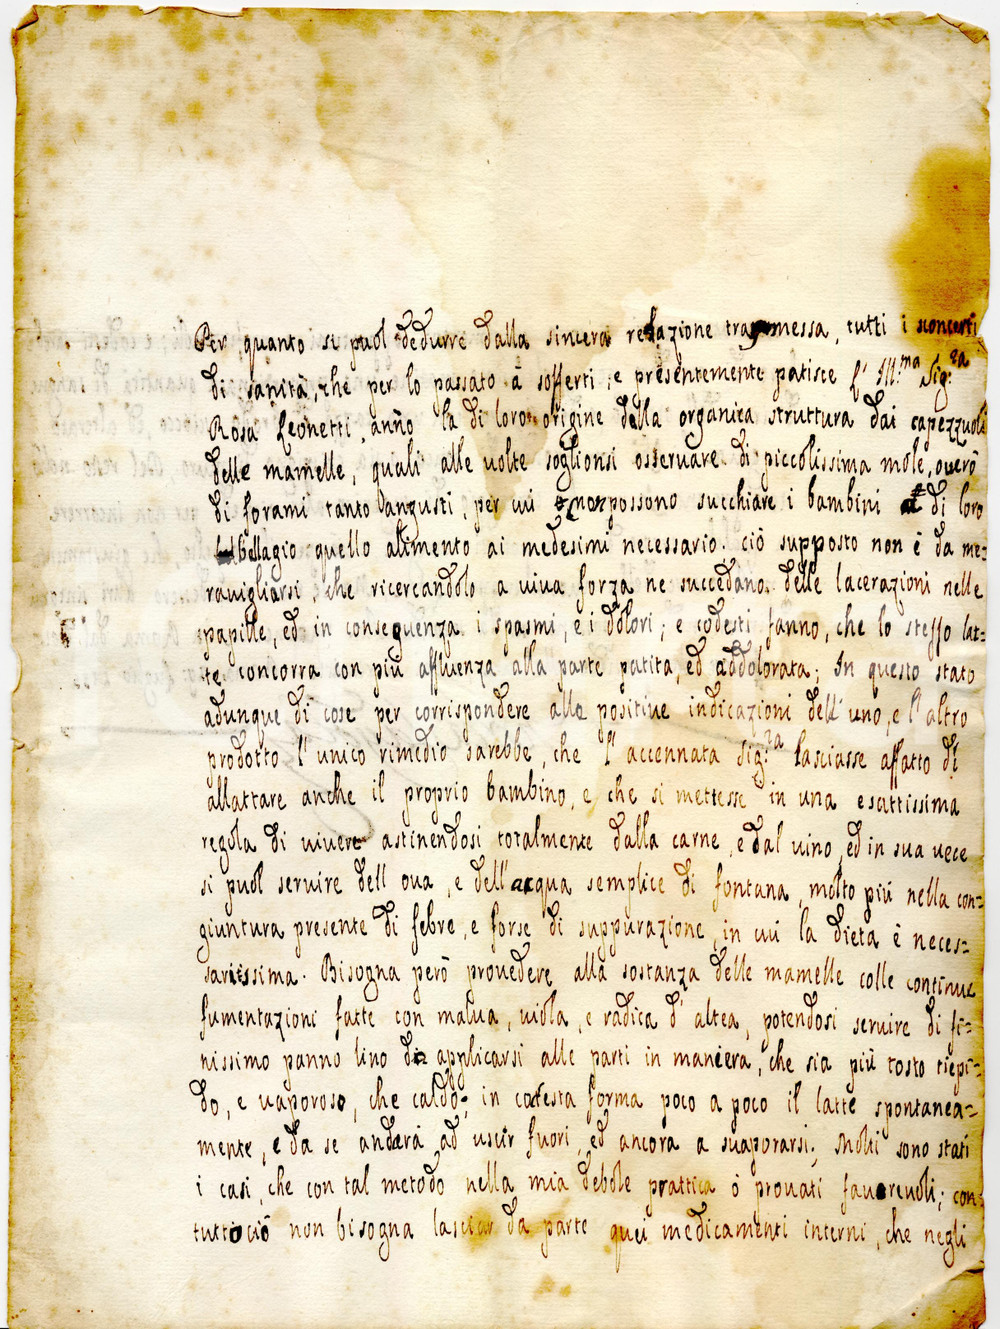 Per quanto si puol dedurre dalla sincera relazione trasmessa, tutti i sconcerti
di sanità, che per lo passato à sofferti, e presentemente patisce l'Ill.ma Sig.ra
Rosa Leonetti, anño la di loro origine della organica struttura dai capezzuoli
delle mamelle, quali alle volte sogliorsi osseruare di piccolissima mole, ouerò
di forami tanto angusti, per cui non possono succhiare i bambini di loro
bellagio quello alimento ai medesimi necessario. ciò supposto non è da me-
ravigliarsi, che ricercandolo a viua forza ne succedano delle lacerazioni nelle
papille, ed in conseguenza i spasmi, e i dolori; e codesti fanno, che lo stesso lat-
te concorra con più affluenza alla parte patita, ed addolorata; In questo stato
adunque di cose per corrispondere alle positiue indicazioni dell'uno, e l'altro
prodotto l'unico rimedio sarebbe, che l'accennata Sig.ra lasciasse affatto di
allattare anche il proprio bambino, e che si mettesse in una esattissima
regola di uiuere astinendosi totalmente dalla carne, e dal uino, ed in sua uece
si puol seruire dell oua, e dell'acqua semplice di fontana, molto più nella con=
giuntura presente di febre, e forse di suppurazione, in cui la dieta è neces=
sariissima. Bisogna però prouedere alla sostanza delle mamelle colle continue
fumentazioni fatte con malua, uiola, e radica d'altea, potendosi seruire di fi=
nissimo panno lino di applicarsi alle parti in maniera, che sia più tosto tiepi=
do, e uaporoso, che caldo; in codesta forma poco a poco il latte spontanea=
mente, e da se anderà ad uscir fuori, ed ancora a suaporarsi; Molti sono stati
i casi, che con tal metodo nella mia debole prattica ò prouati fauoreuoli; con
tuttociò non bisogna lasciar da parte quei medicamenti interni, che negli